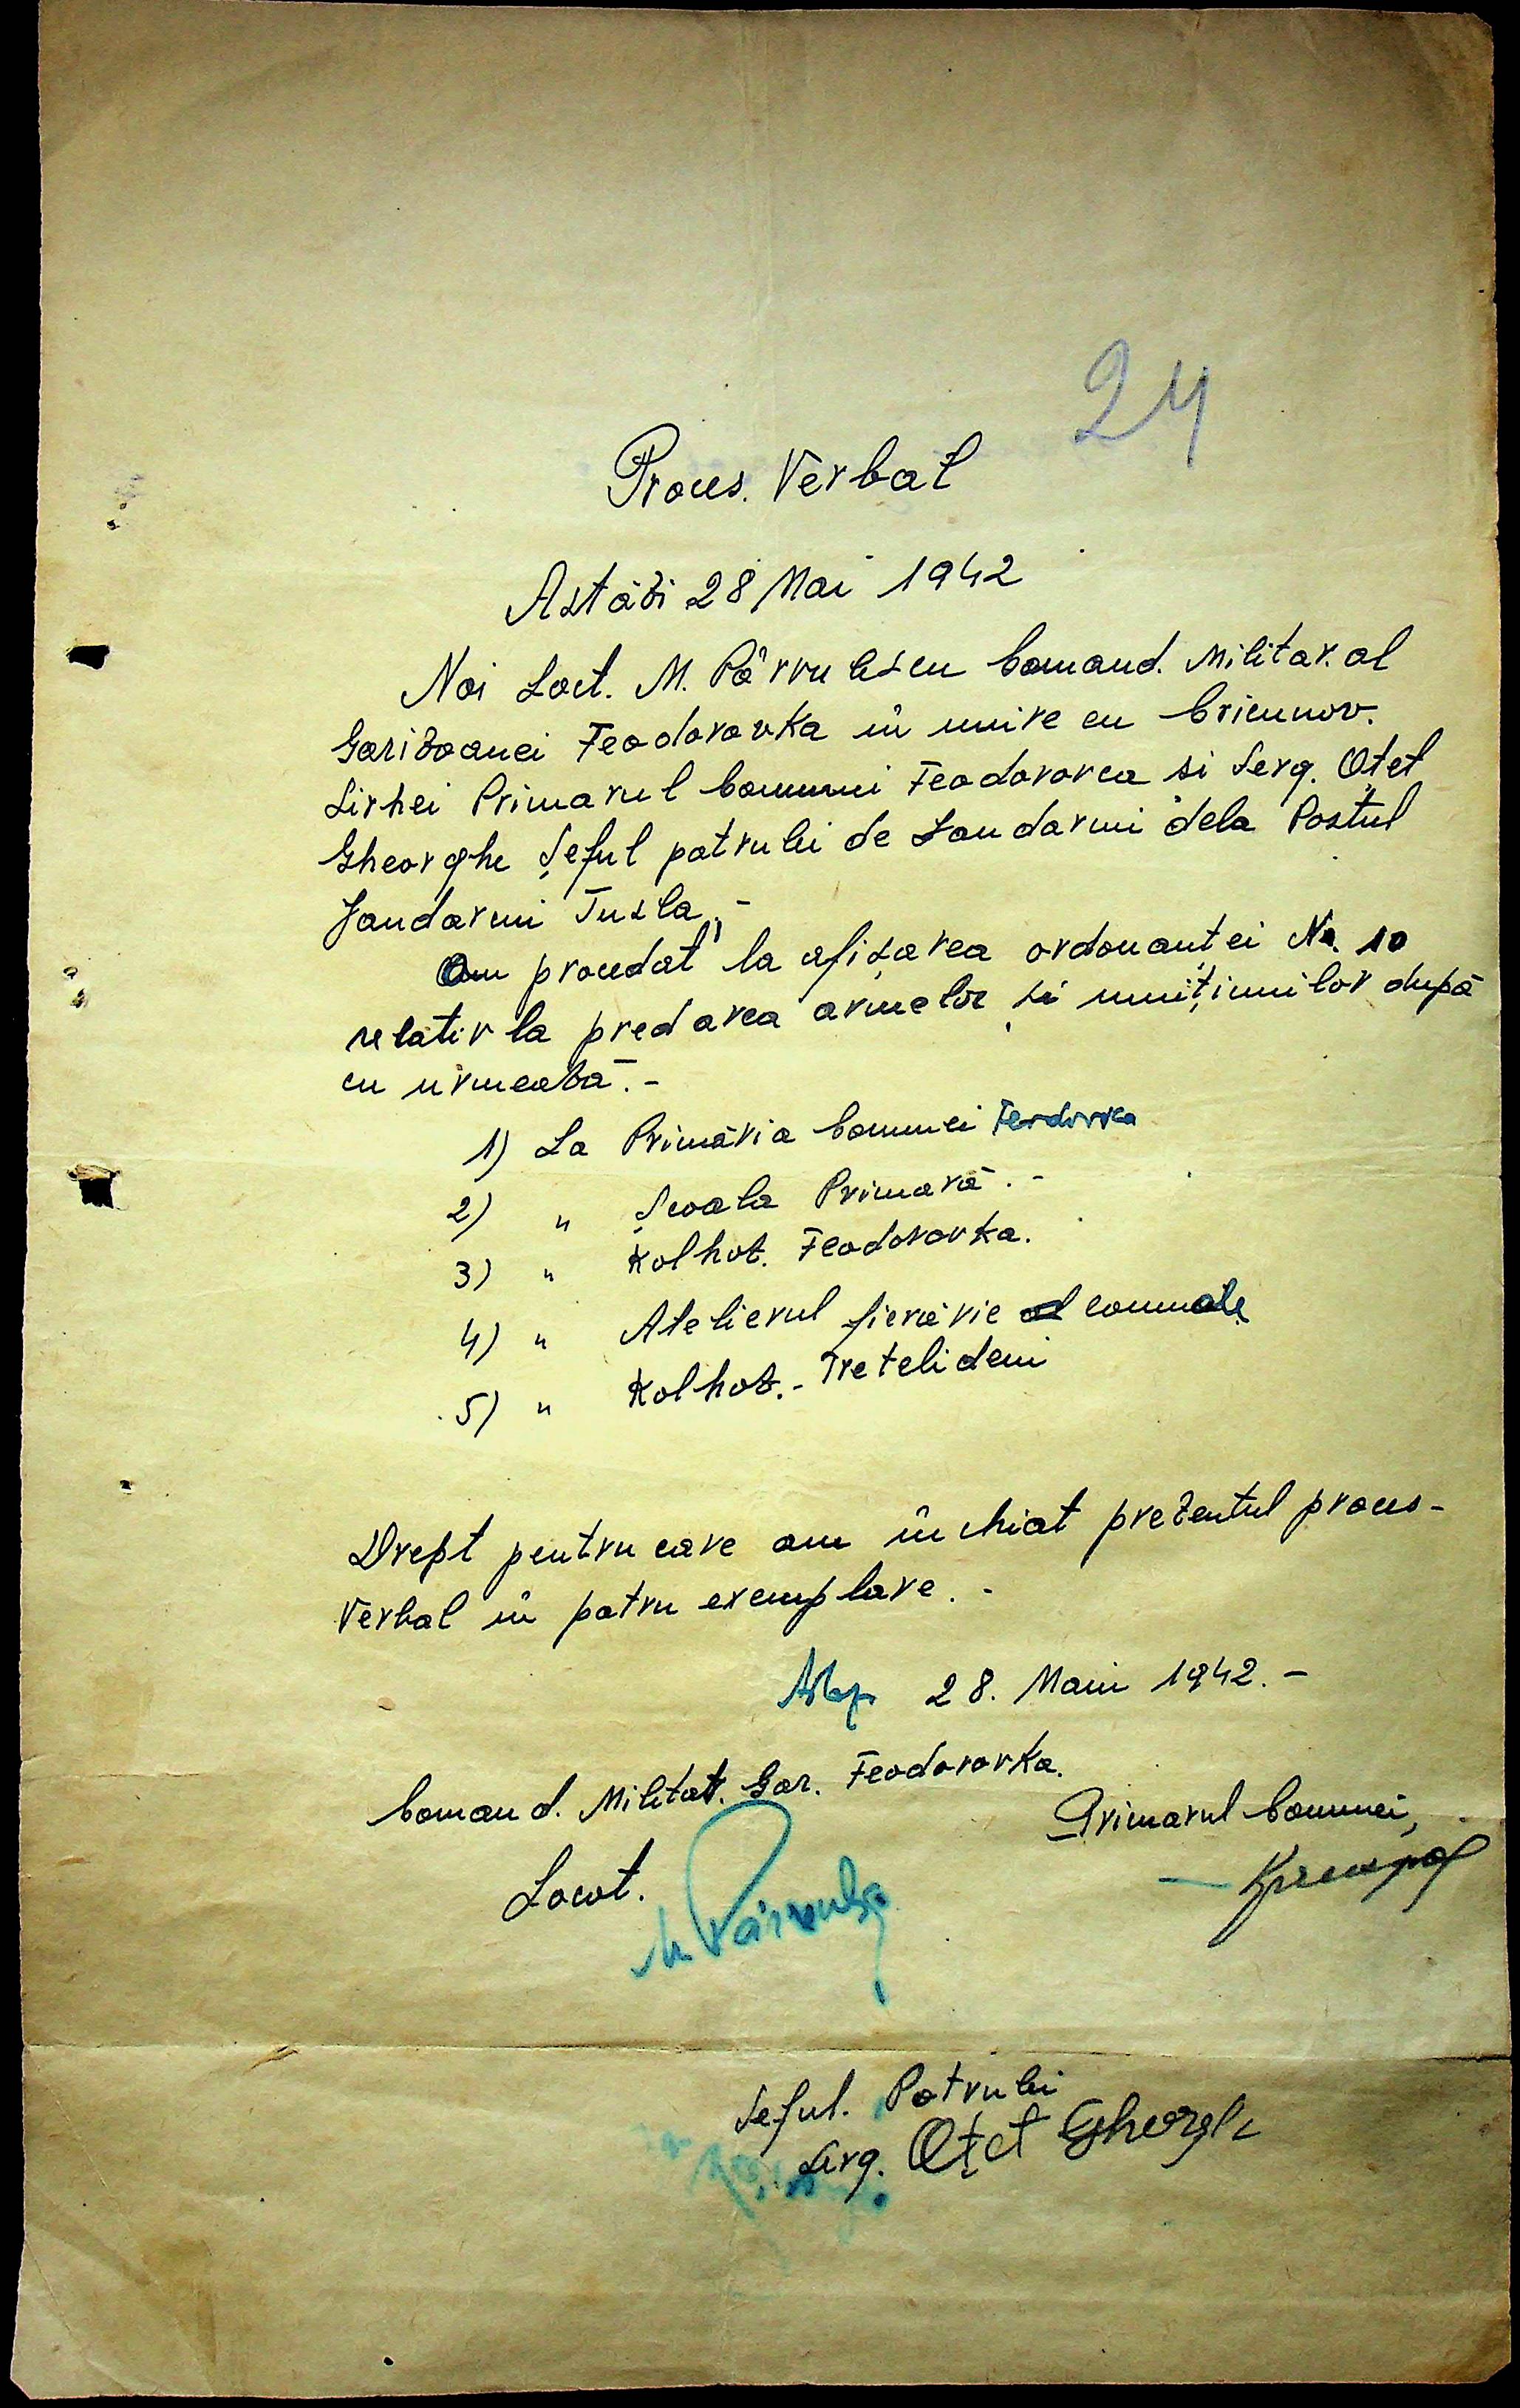 24
Proces. Verbal
Astăzi 28 Mai 1942
Noi Loct. M. Pârvulescu Comand. Militar. al
Garizoanei Feodorovka în unire cu Cricunov.
Sirhei Primarul Comunei Feodorovca si Serg. Oțet
Gheorghe Șeful patrulei de Jandarmi dela Postul
Jandarmi Tuzla.-
Am procedat la afișarea ordonanței No. 10
relativ la predarea armelor și munițiunilor după
cu urmează.-
1) La Primăria Comunei Feodorvca
2) " Școala Primară.-
3) " Kolhoz. Feodorovka.
4) " Atelierul fierărie comunale
5) " Kolhoz.- Tretelideni
Drept pentru care am închiat prezentul proces-
Verbal în patru exemplare.-
28. Maiu 1942.-
Comand. Militar. Gar. Feodorovka.
Primarul Comunei,
Locot.
M. Pârvulescu
Seful. Patrulei
Serg. Oțet Gheorghe